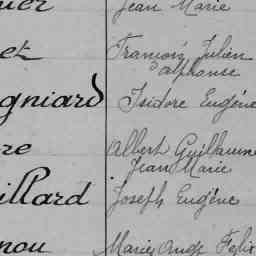 uer Jean Marie
et François Julien
alphonse
gniard Isidore Eugène
re Albert Guillaume
Jean Marie
illard Joseph Eugène
nou Marie Ange Felix